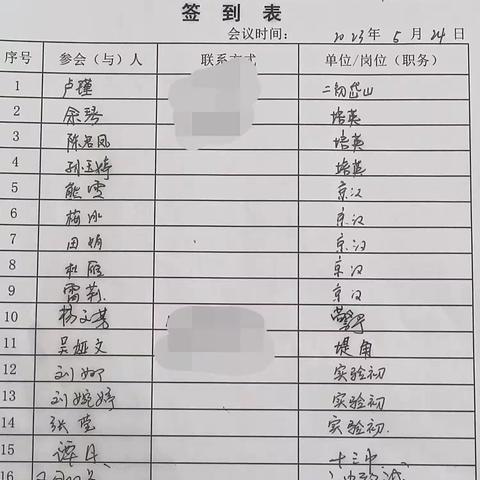 签到表
会议时间: 2023年5月24日
序号 参会(与)人 联系方式 单位/岗位(职务)
1 卢瑾 二初岱山
2 余 培英
3 陈名凤 培英
4 孙玉婷 培英
5 熊雪 京汉
6 梅冰 京汉
7 田娟 京汉
8 杜丽 京汉
9 雷莉 京汉
10 杨文
11 吴娅文 堤角
12 刘娜 实验初
13 刘婉婷 实验初
14 张莹 实验初
15 谭 十三中
16